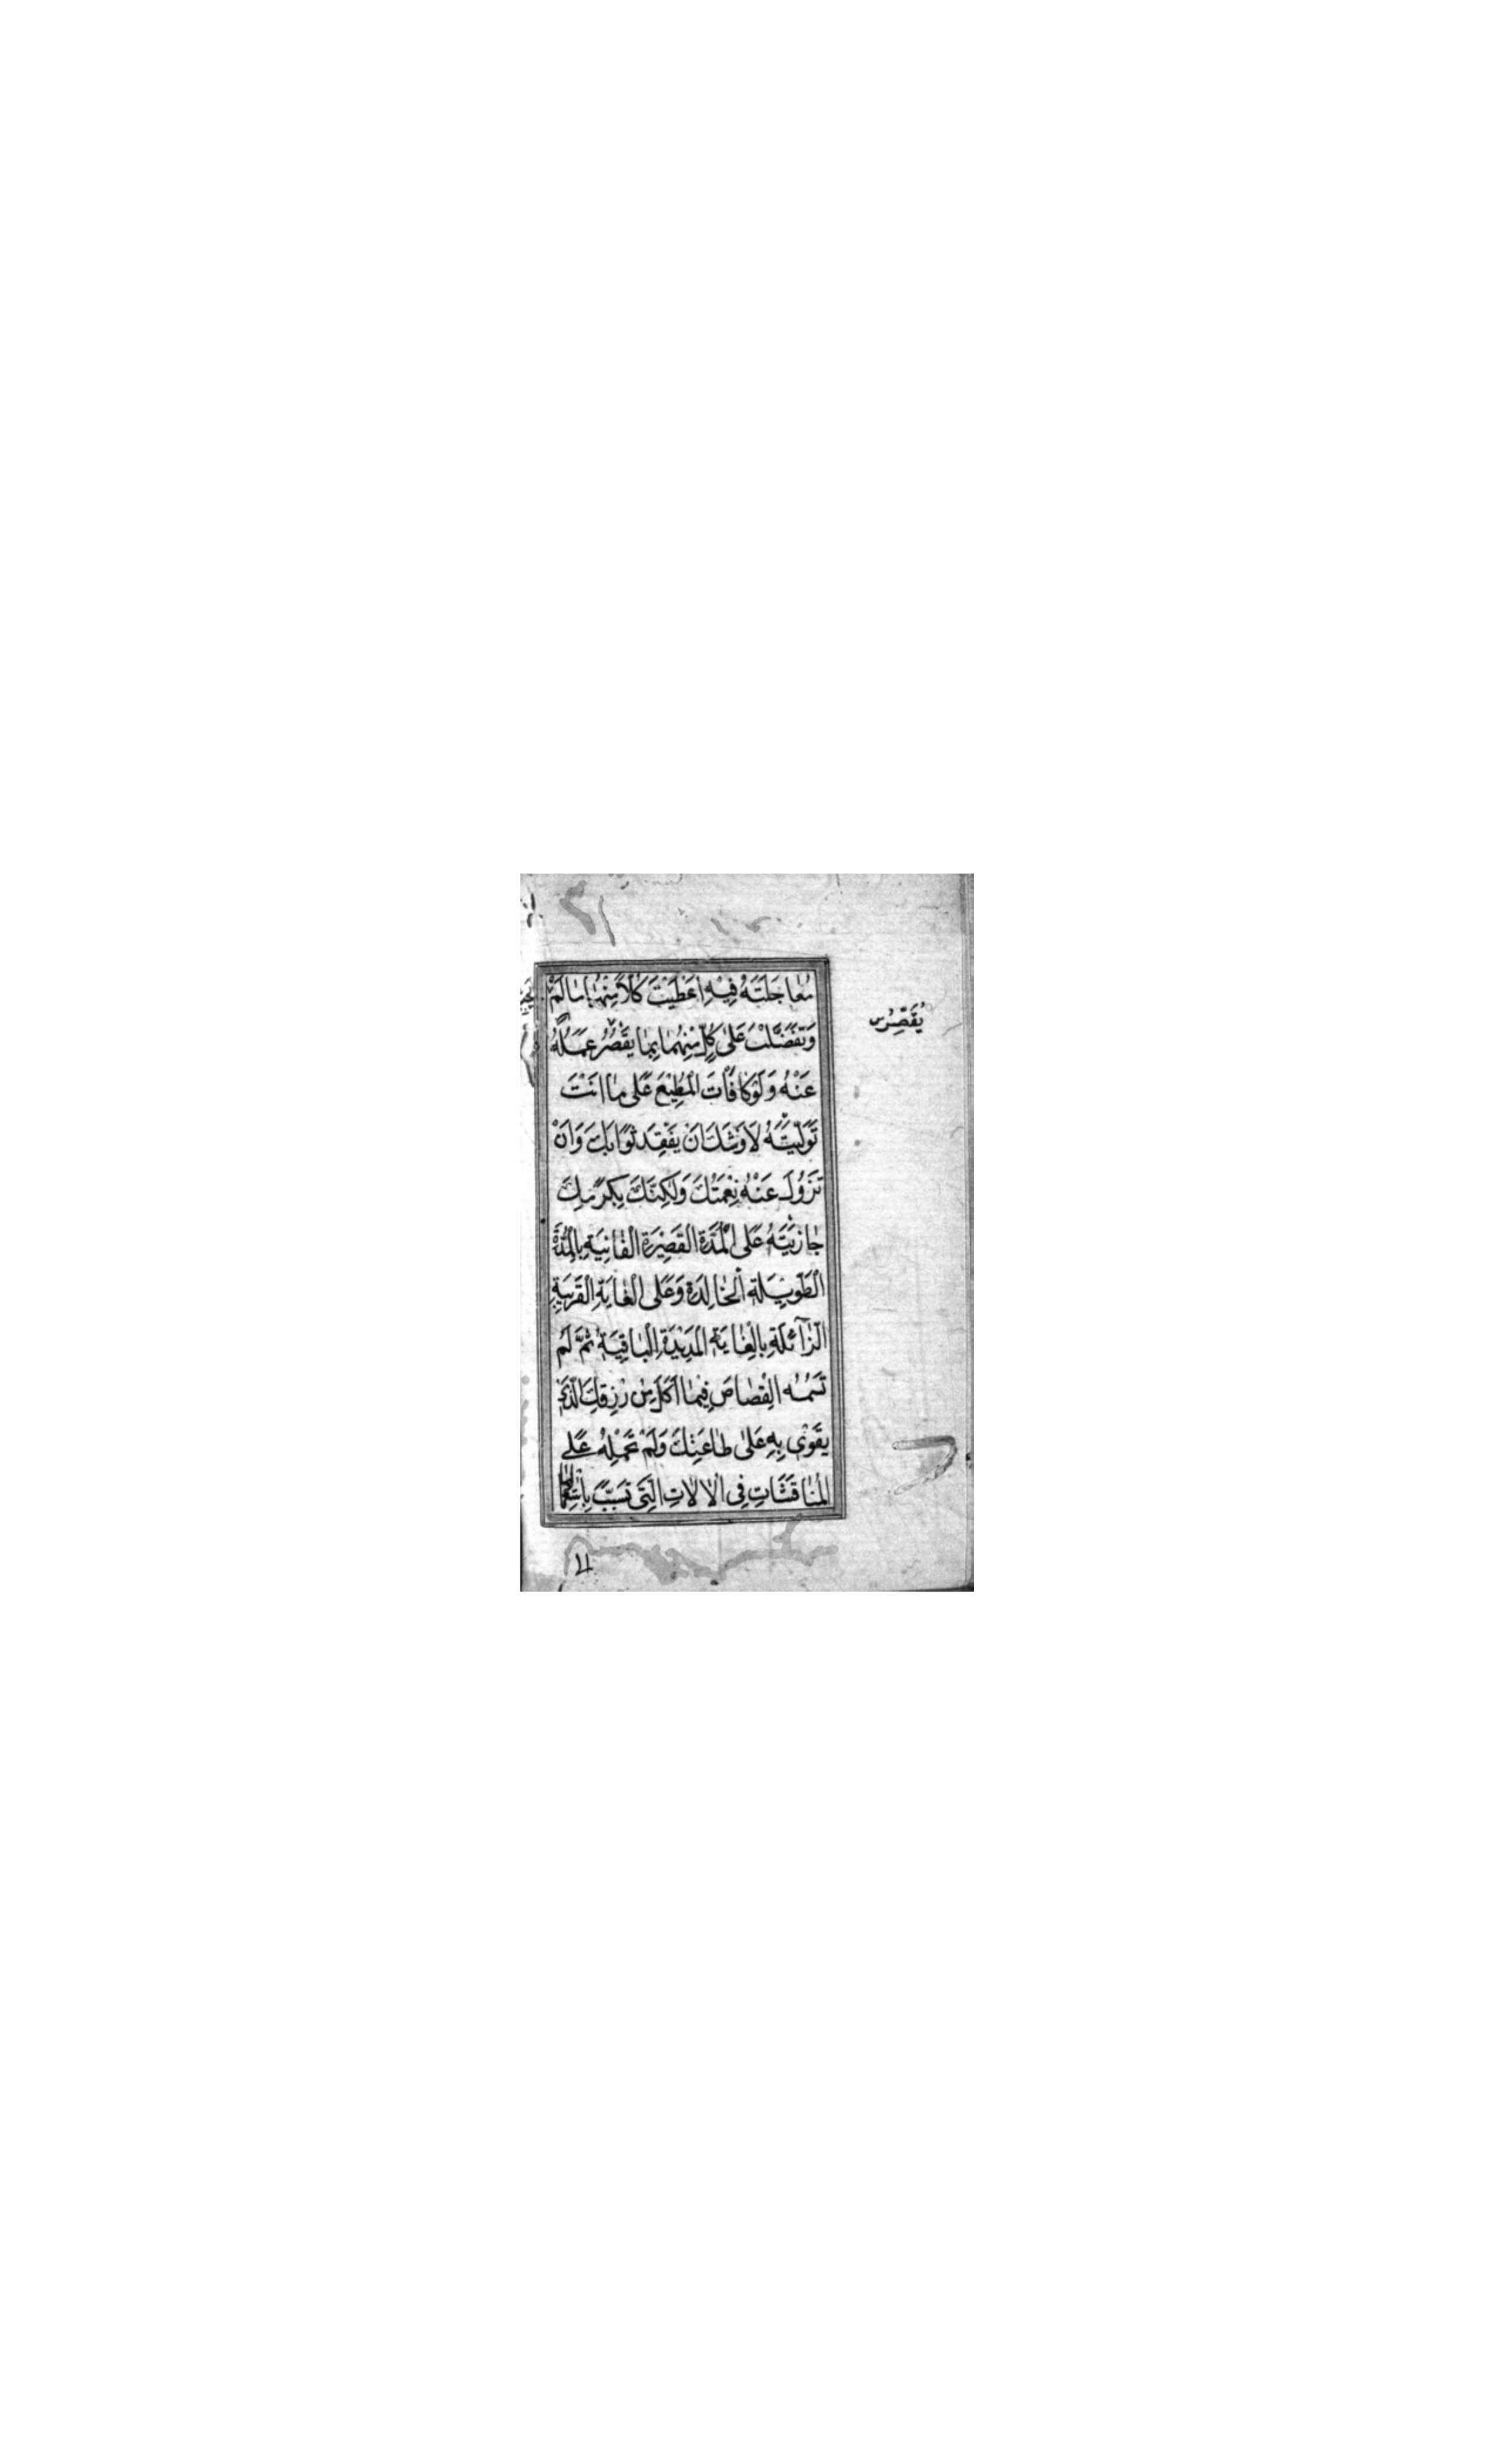 مُعٰاجَلَتَهُ فِيْهِ اَعْطَيْتَ كُلًّا مِنْهُمٰا مٰا لَمْ
وَتَفَضَّلْتَ عَلىٰ كُلٍّ مِنْهُمٰا بِمٰا يَقْصُرُ عَمَلُهُ
يُقَصِّرُ س
عَنْهُ وَلَوْ كٰافَأْتَ الْمُطِيْعَ عَلىٰ مٰا اَنْتَ
تَوَلَّيْتَهُ لَاَوْشَكَ اَنْ يَفْقِدَ ثَوٰابَكَ وَاَنْ
تَزُوْلَ عَنْهُ نِعْمَتُكَ وَلٰكِنَّكَ بِكَرَمِكَ
جٰازَيْتَهُ عَلَى الْمُدَّةِ الْقَصِيْرَةِ الْفٰانِيَةِ بِالْمُدَّةِ
الْطَوِيْلَةِ الْخٰالِدَةِ وَعَلَى الْغٰايَةِ الْقَرِيْبَةِ
الزّٰآئِلَةِ بِالْغٰايَةِ الْمَدِيْدَةِ الْبٰاقِيَةِ ثُمَّ لَمْ
تَسُمْهُ الْقِصٰاصَ فِيْمٰا اَكَلَ مِنْ رِزْقِكَ الَّذِيْ
يَقْوٰى بِهِ عَلىٰ طٰاعَتِكَ وَلَمْ تَحْمِلْهُ عَلَى
الْمُنٰاقَشٰاتِ فِى الْاٰلاٰتِ الَّتِيْ تَسَبَّبَ بِاسْتِعْمٰالِهٰا